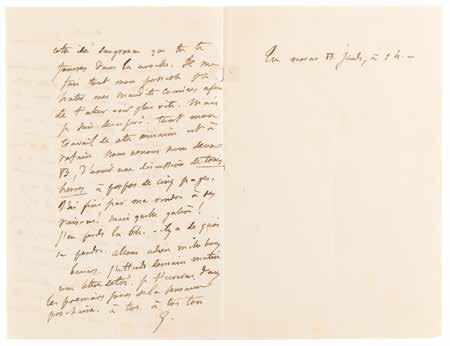 cette idée saugrenue que tu te
fourres dans la cervelle. Je vais
faire tout mon possible pr
hâter mes maudites corrections afin
de t'aller voir plus vite. Mais
je suis désespéré. tout mon
travail de cette semaine est à
refaire. Nous venons nous deux
B, d'avoir une discussion de trois
heures à propos de cinq pages.
J'ai fini par me rendre à ses
raisons. mais quelle galère !
J'en perds la tête. – il y a de quoi
se pendre. allons adieu mille bons
baisers. J'attends demain matin
une autre lettre. je t'écrirai d'ici
les premiers jours de la semaine
prochaine. à toi, à toi ton
G.
13 jeudi, à 1 h. –